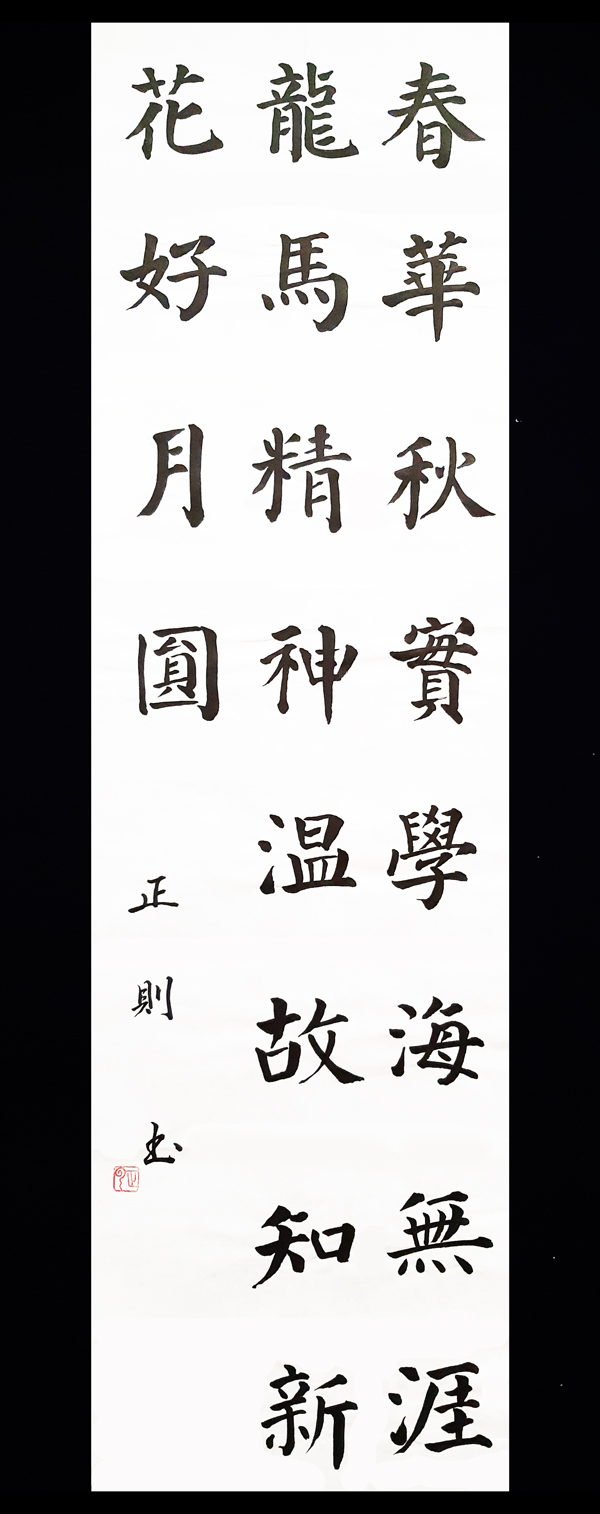 春華秋實學海無涯
龍馬精神温故知新
花好月圓
正則书